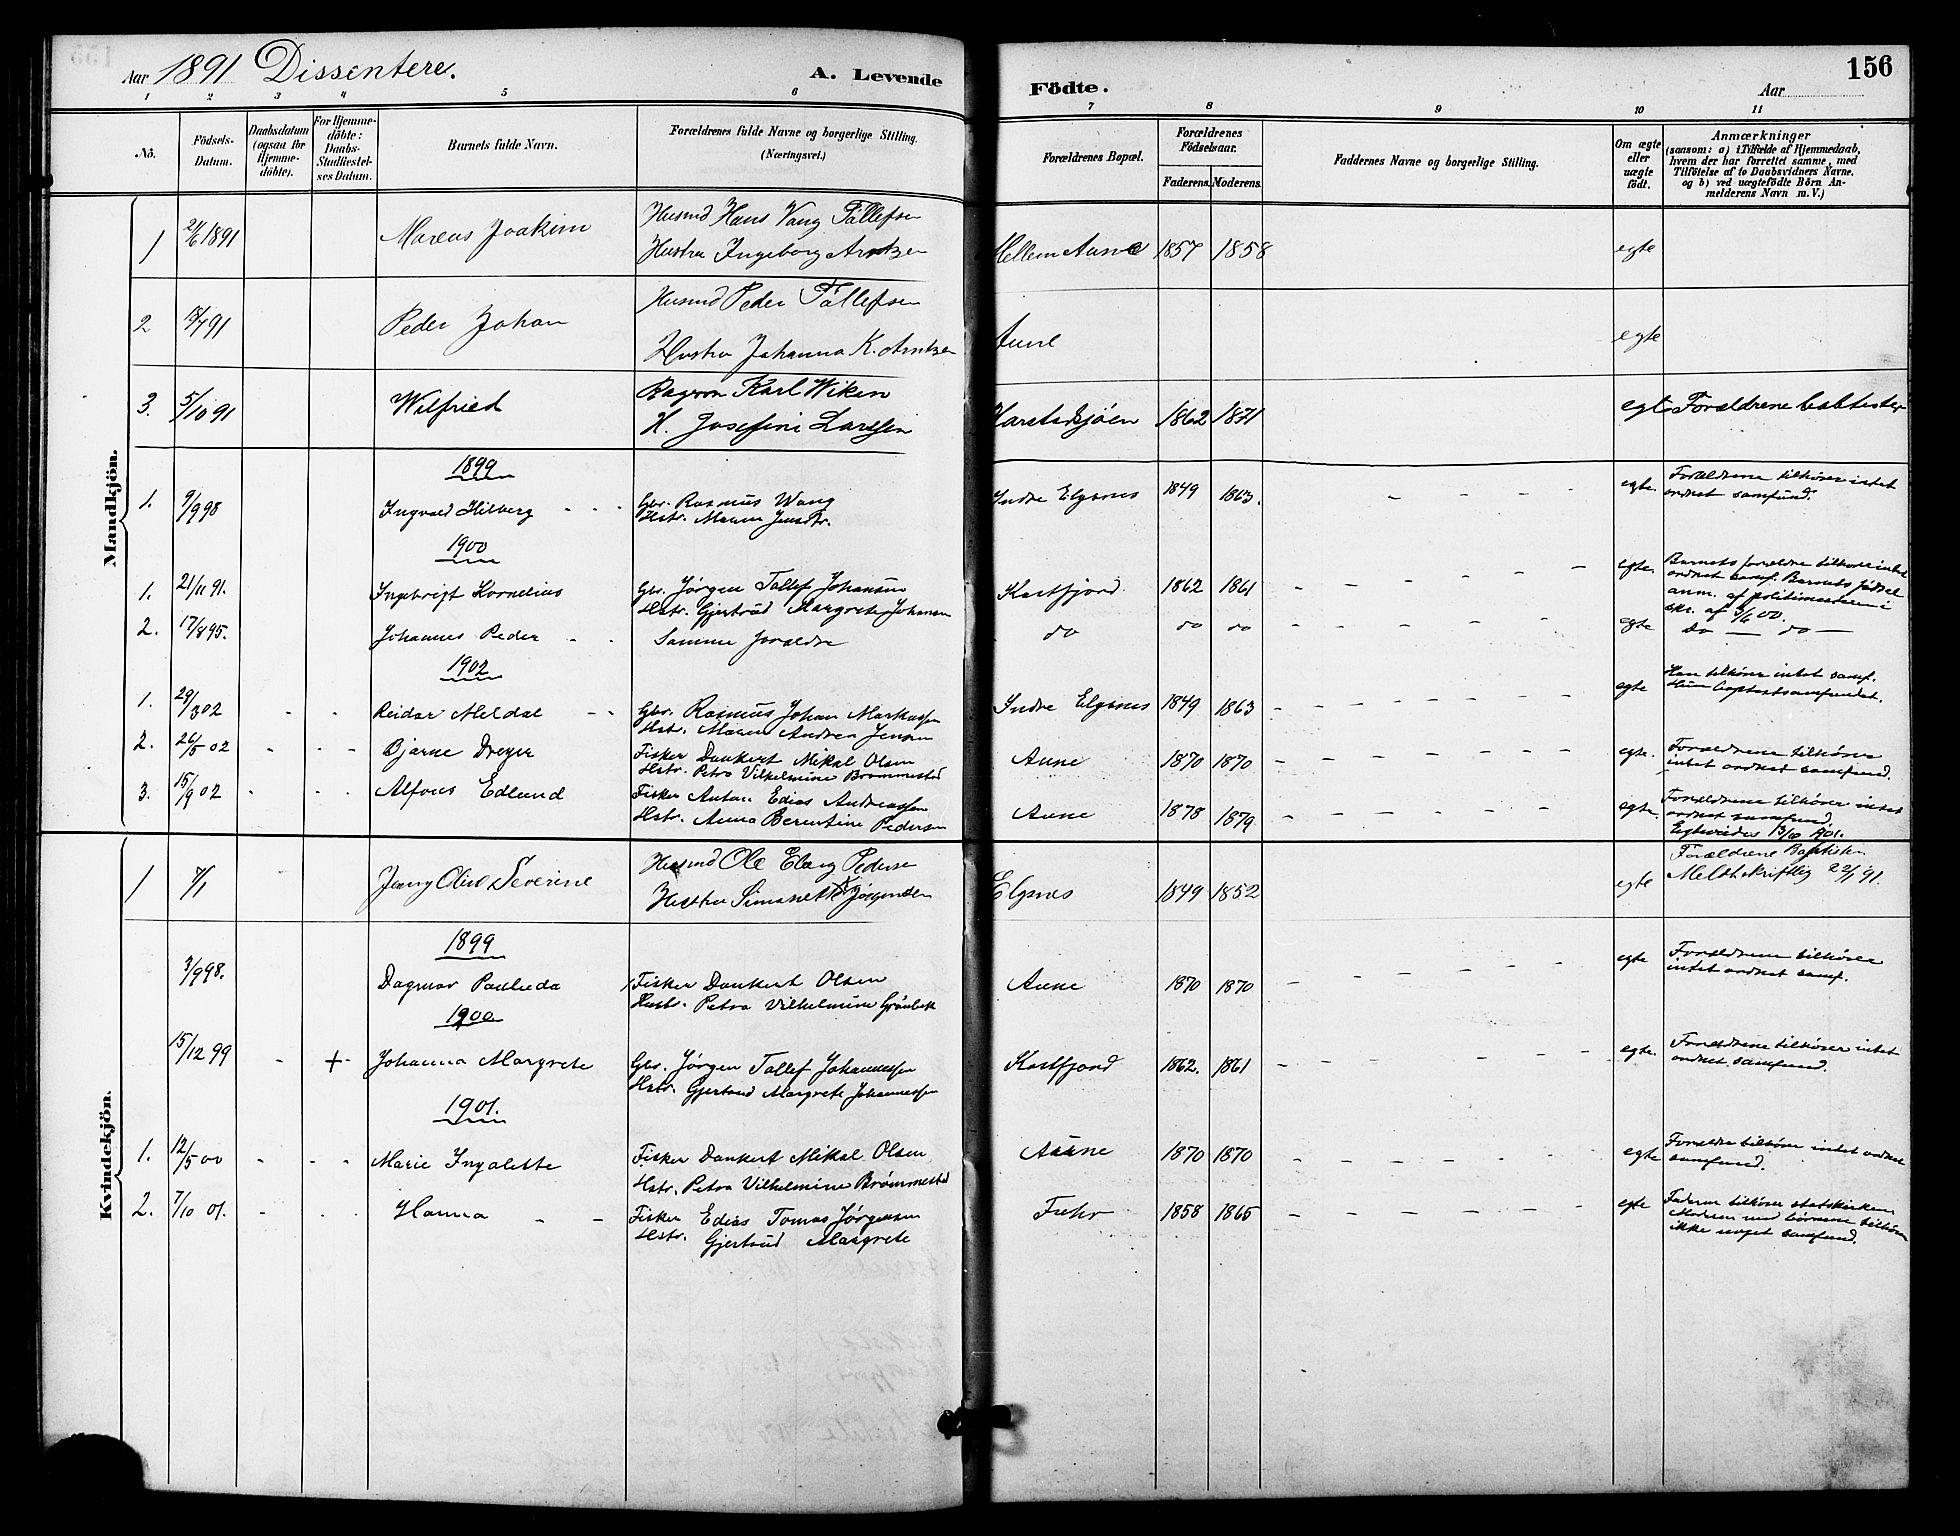 Aar 1891 Dissentere. A. Levende Fødte. Aar 156
1 2 3 4 5 6 7 8 9 10 11
No. Födsels-Datum. Daabsdatum (ogsaa for Hjemme-döbte). For Hjemme-döbte: Daabs-Stadfæstel-ses Datum. Barnets fulde Navn. Forældrenes fulde Navne og borgerlige Stilling. (Næringsvei.) Forældrenes Bopæl. Forældrenes Födselsaar. Faderens. Moderens. Faddernes Navne og borgerlige Stilling. Om ægte eller uægte födt. Anmærkninger (saasom: a) i Tilfælde af Hjemmedaab, hvem der har forrettet samme, med Tilföielse af to Daabsvidners Navne. og b) ved uægtefödte Börn An-melderens Navn m. V.)
Mandkjön.
1 2/6 1891 Marcus Joakim Husmd Hans Vang Tållefsen Hellem Aune 1857 1858 egte
Hustru Ingeborg Arntzen
2 /7 91 Peder Johan Husmd Peder Tållefsen Aune egte
Hustru Johanna K. Arntzen
3. 5/10 91 Wilfried Karl Wiken 1862 1871 egte Forældrene babtister
H. Josefine Larssen
1899
1. 9/9 98 Ingvald Hilberg - - - Gbr. Rasmus Wang Indre Elgsnes 1849 1863. - - - - egte. Forældrene tilhører intet
Hstr. Maren Jensdtr. ordnet samfund.
1900
1. 21/11 91. Ingebrigt Kornelius Gbr. Jørgen Tollef Johansen Kastfjord 1862 1861 - - - - - - egte. Barnets forældre tilhører intet
Hstr. Gjertrud Margrete Johansen ordnet samf. Barnets fødsel
anm. af politimesteren i
skr. af 5/6 00.
2. 17/8 95. Johannes Peder - - Samme forældre do do do - - - - - - egte do — do —
1902
1. 29/3 02 - - - Reidar Meldal - - Gbr. Rasmus Johan Markussen Indre Elgsnes 1849 1863 - - - - - - egte Han tilhører intet samf.
Hstr. Maren Andrea Jensen Hun baptistsamfundet.
2. 26/5 02 - - - Bjarne Dreyer Fisker Dankert Mikal Olsen Aune 1870 1870 - - - - - - egte. Forældrene tilhører
Hstr. Petra Vilhelmine Brømmestad intet ordnet samfund.
3. 15/9 02 - - - Alfons Edlund Fisker Anton Edias Andreassen Aune 1878 1879 - - - - - - egte. Forældrene tilhører intet
Hstr. Anna Berentine Pedersen ordnet samfund.
Egteviedes 13/10 1901.
Kvindekjön.
1 7/1 Jenny Severine Husmd Ole Pedersen Elgsnes 1849 1852 egte Forældrene Baptister
Hustru Jørgensen Meldt skriftlig 22/1 91.
1899
3/9 98. Dagmar Paulieda Fisker Dankert Olsen Aune 1870 1870 - - - - - egte Forældrene tilhører
Hustr. Petra Vilhelmine Grønbek intet ordnet samf.
1900
15/12 99 - + - Johanna Margrete Gbr. Jørgen Tollef Johannessen Kastfjord 1862. 1861 - - - - - - egte. Forældrene tilhører intet
Hstr. Gjertrud Margrete Johannessen ordnet samfund.
1901.
1. 12/5 00 - - - Marie Ingolette Fisker Dankert Mikal Olsen Aune 1870 1870 - - - - - - egte Forældre tilhører intet ordnet
Hstr. Petra Vilhelmine Brømmestad samfund.
2. 7/10 01. - - - Hanna - - Fisker Edias Tomas Jørgensen 1858 1865 - - - - - - egte Faderen tilhører statskirken
Hstr. Gjertrud Margrete Moderen med børnene tilhører
ikke noget samfund.